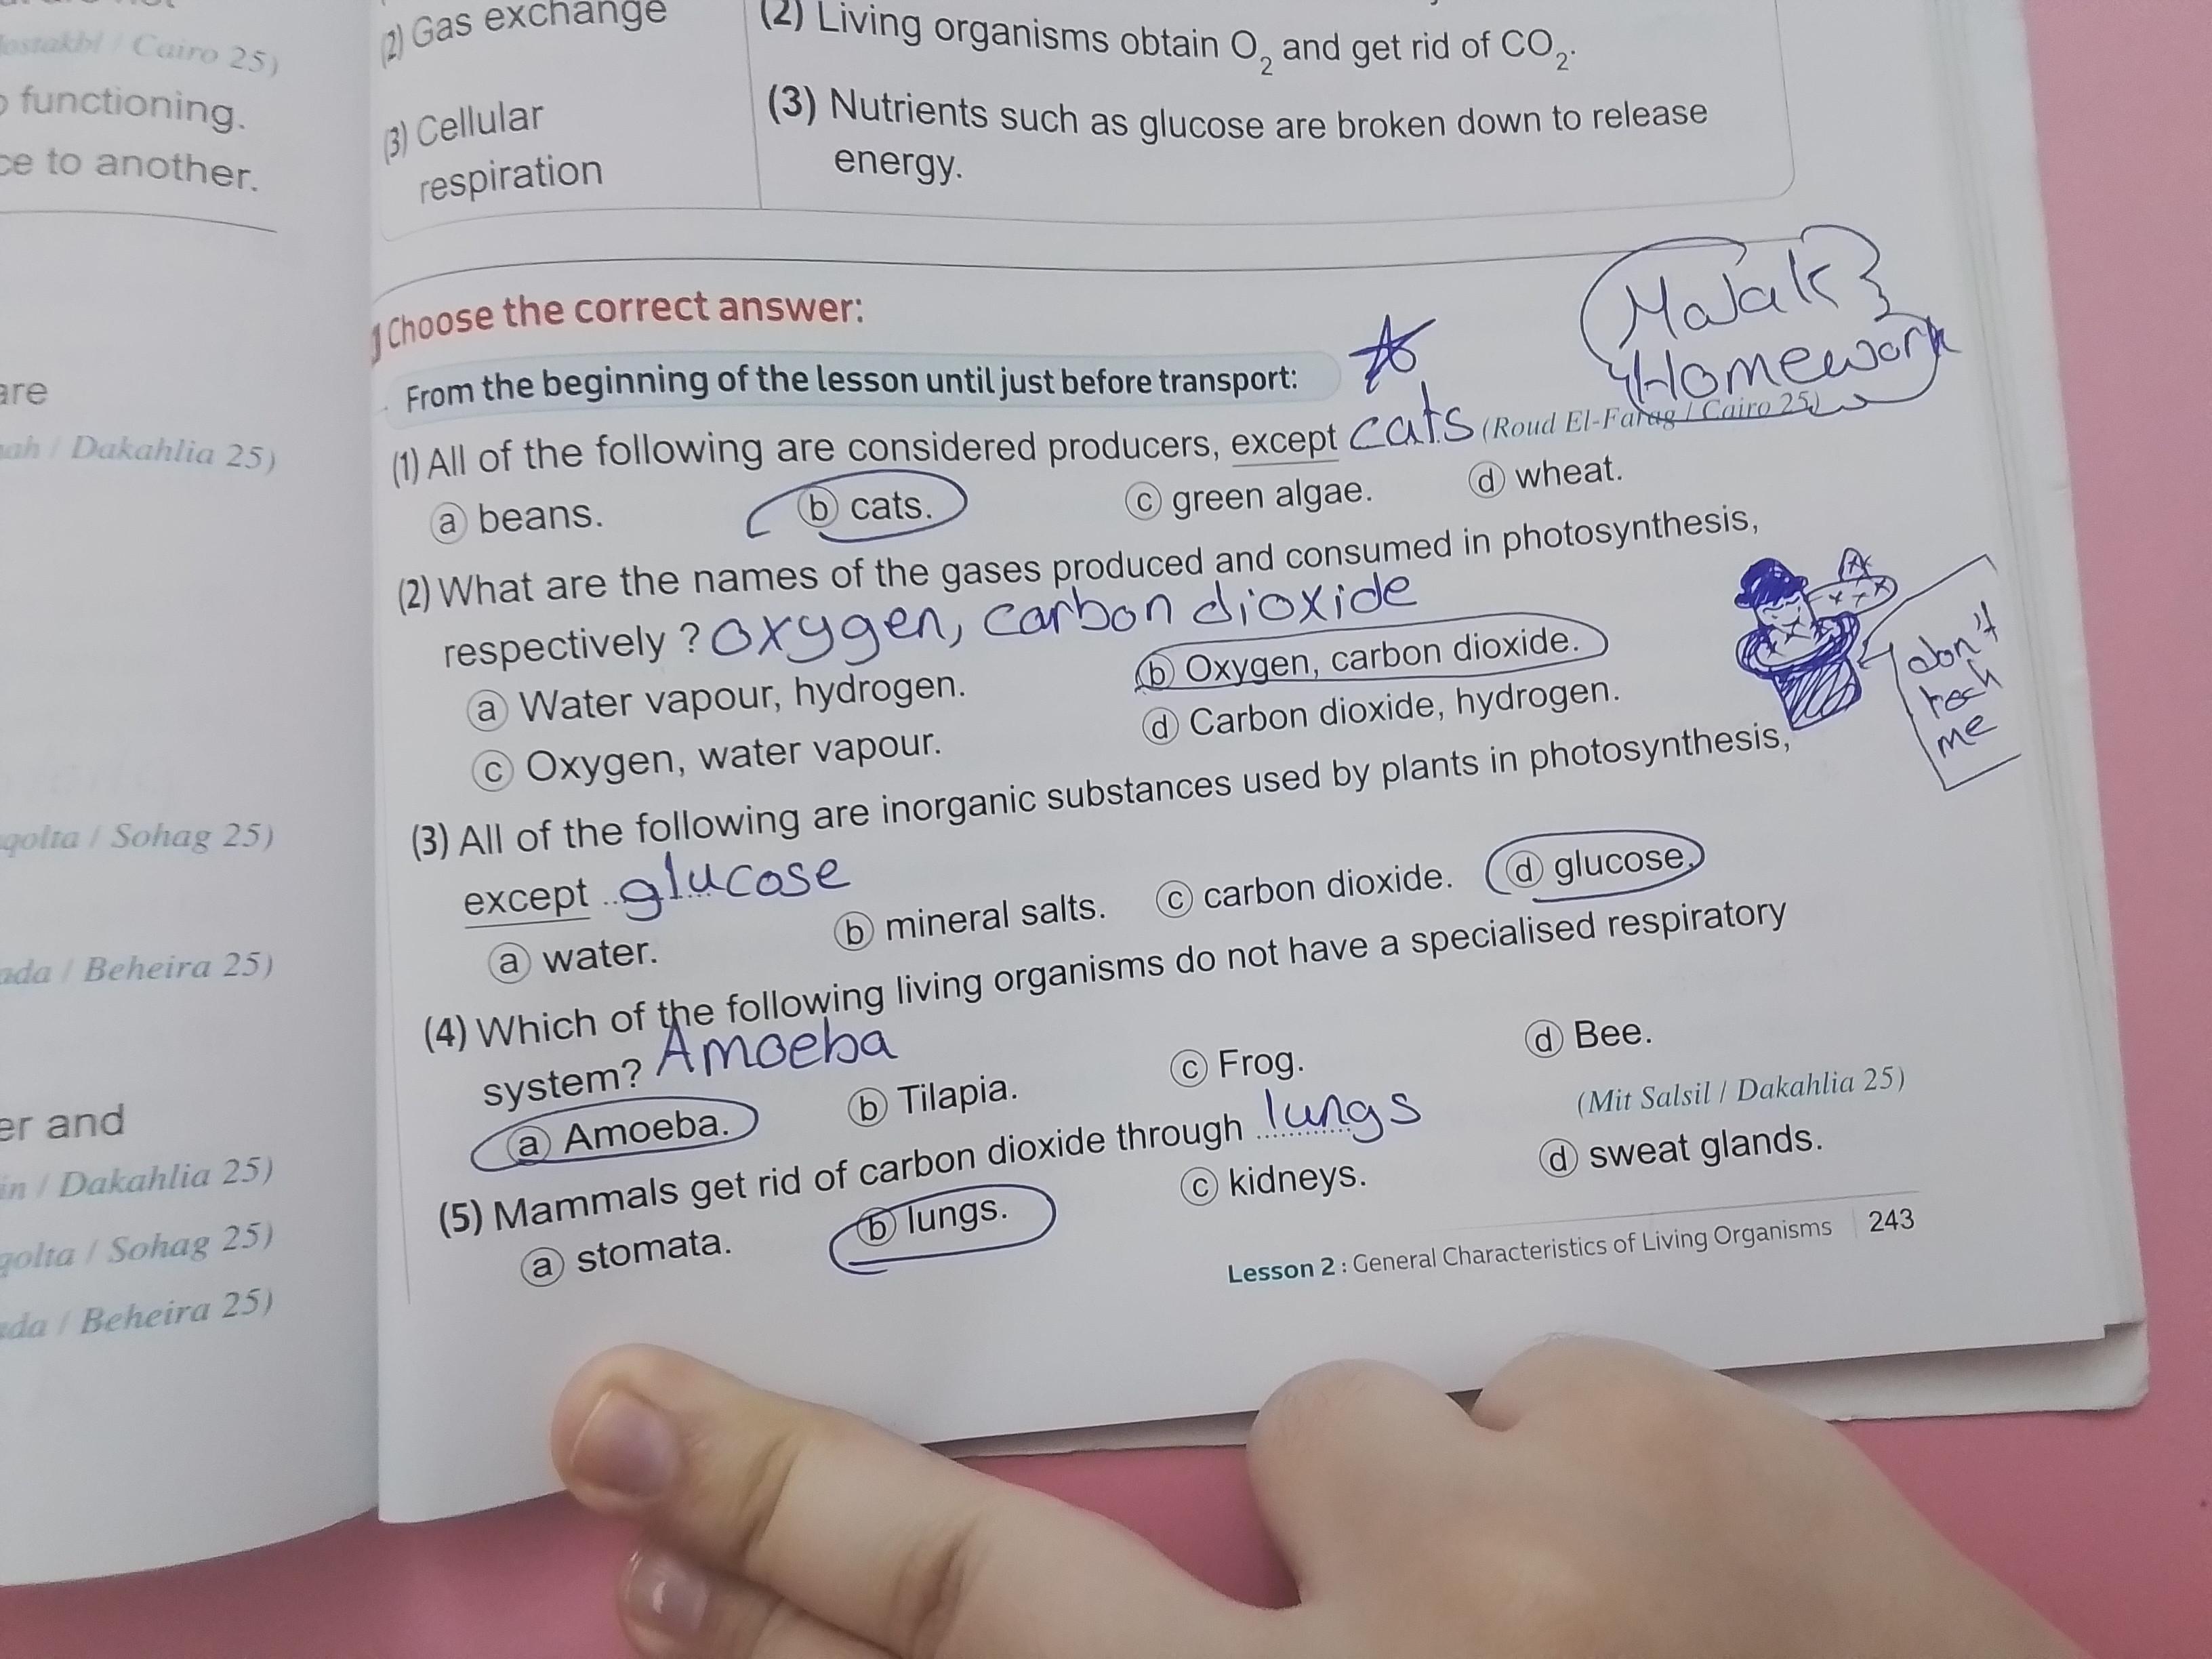 ostakbl / Cairo 25)
functioning.
ce to another.
are
ah / Dakahlia 25)
qolta / Sohag 25)
ada / Beheira 25)
er and
in / Dakahlia 25)
qolta / Sohag 25)
da / Beheira 25)
(2) Gas exchange
(2) Living organisms obtain O₂ and get rid of CO₂.
(3) Cellular
respiration
(3) Nutrients such as glucose are broken down to release
energy.
Malak
Homework
Choose the correct answer:
From the beginning of the lesson until just before transport:
(1) All of the following are considered producers, except cats (Roud El-Farag / Cairo 25)
a beans. b cats. c green algae. d wheat.
(2) What are the names of the gases produced and consumed in photosynthesis,
respectively ? oxygen, carbon dioxide
a Water vapour, hydrogen. b Oxygen, carbon dioxide.
c Oxygen, water vapour. d Carbon dioxide, hydrogen.
don't
me
(3) All of the following are inorganic substances used by plants in photosynthesis,
except glucose
a water. b mineral salts. c carbon dioxide. d glucose.
(4) Which of the following living organisms do not have a specialised respiratory
system? Amoeba
a Amoeba. b Tilapia. c Frog. d Bee.
(5) Mammals get rid of carbon dioxide through lungs (Mit Salsil / Dakahlia 25)
a stomata. b lungs. c kidneys. d sweat glands.
Lesson 2 : General Characteristics of Living Organisms 243